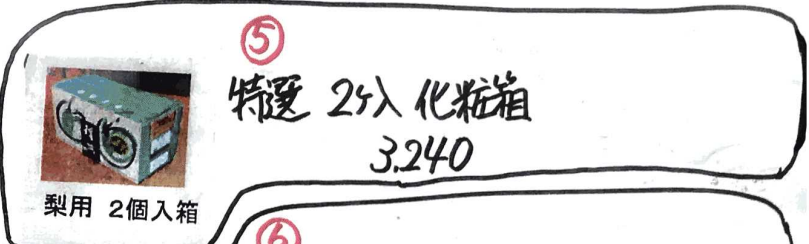 ⑤
特選 2ヶ入 化粧箱
3.240
梨用 2個入箱
⑥